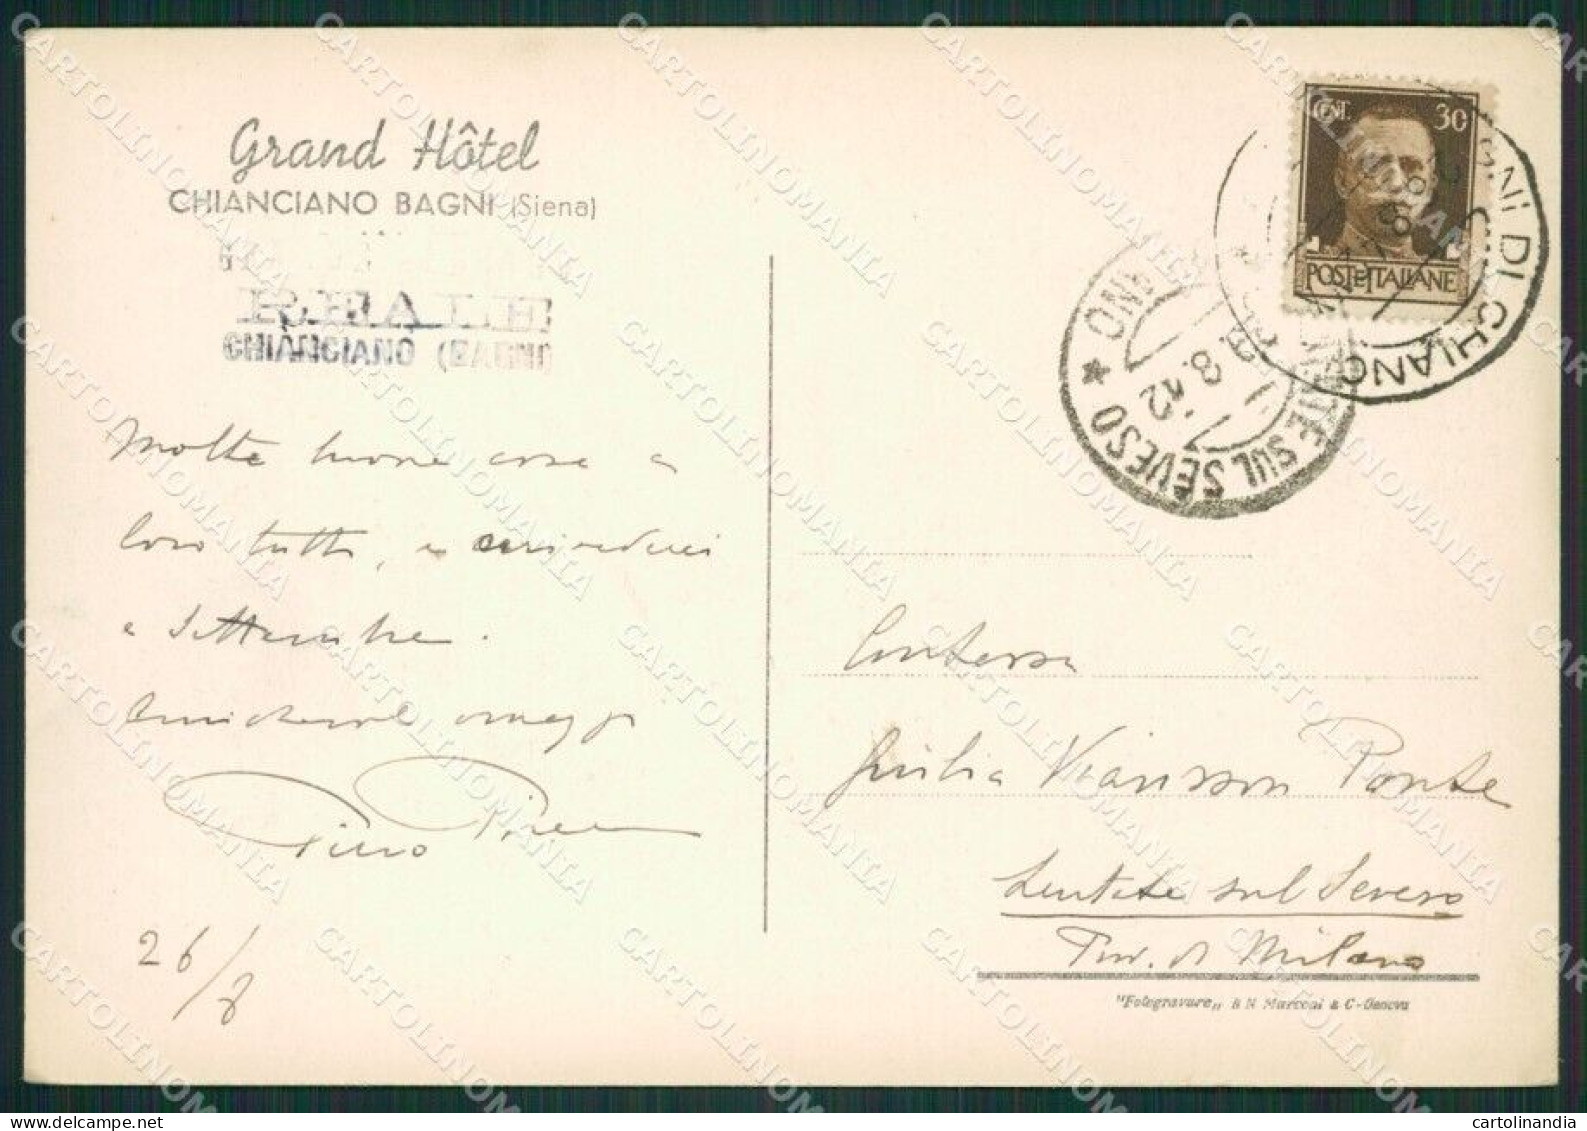 Grand Hôtel
CHIANCIANO BAGNI (Siena)
REALE
CHIANCIANO (BAGNI)
Molte buone cose a
loro tutti, e arrivederci
a Settembre.
Amichevoli omaggi
Piero
26/8
CENT. 30
POSTE ITALIANE
BAGNI DI CHIANC
SUL SEVESO
Contessa
Giulia Viansson Ponte
Lentate sul Seveso
Prov. di Milano
"Fotogravure" B N Marconi & C - Genova
CARTOLINOMANIA
cartolinandia